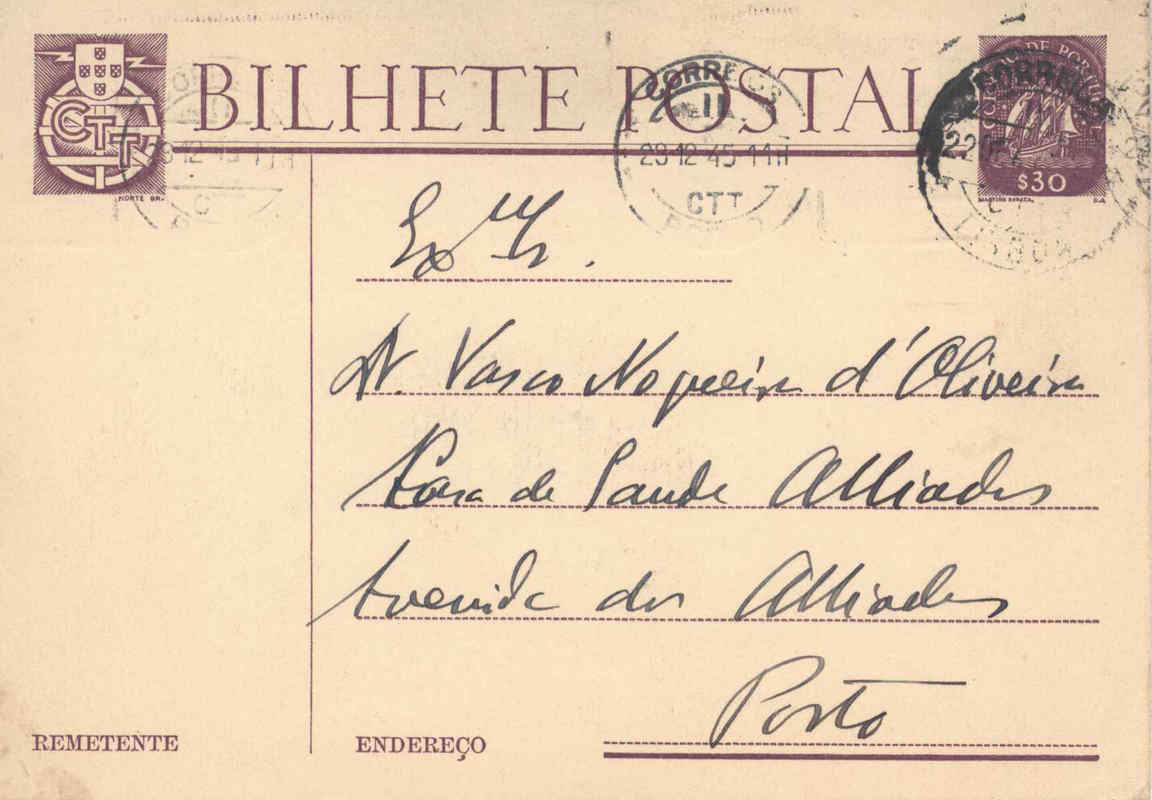 BILHETE POSTAL
CTT
NORTE GR.
CORREIOS
28 12 45 11H
CTT
CORREIOS
22
LISBOA
CORREIO DE PORTUGAL
$30
MARTINS BARATA,
Exmo Sr.
Dr. Vasco Nogueira d'Oliveira
Casa de Saude Alliados
Avenida dos Alliados
Porto
REMETENTE
ENDEREÇO